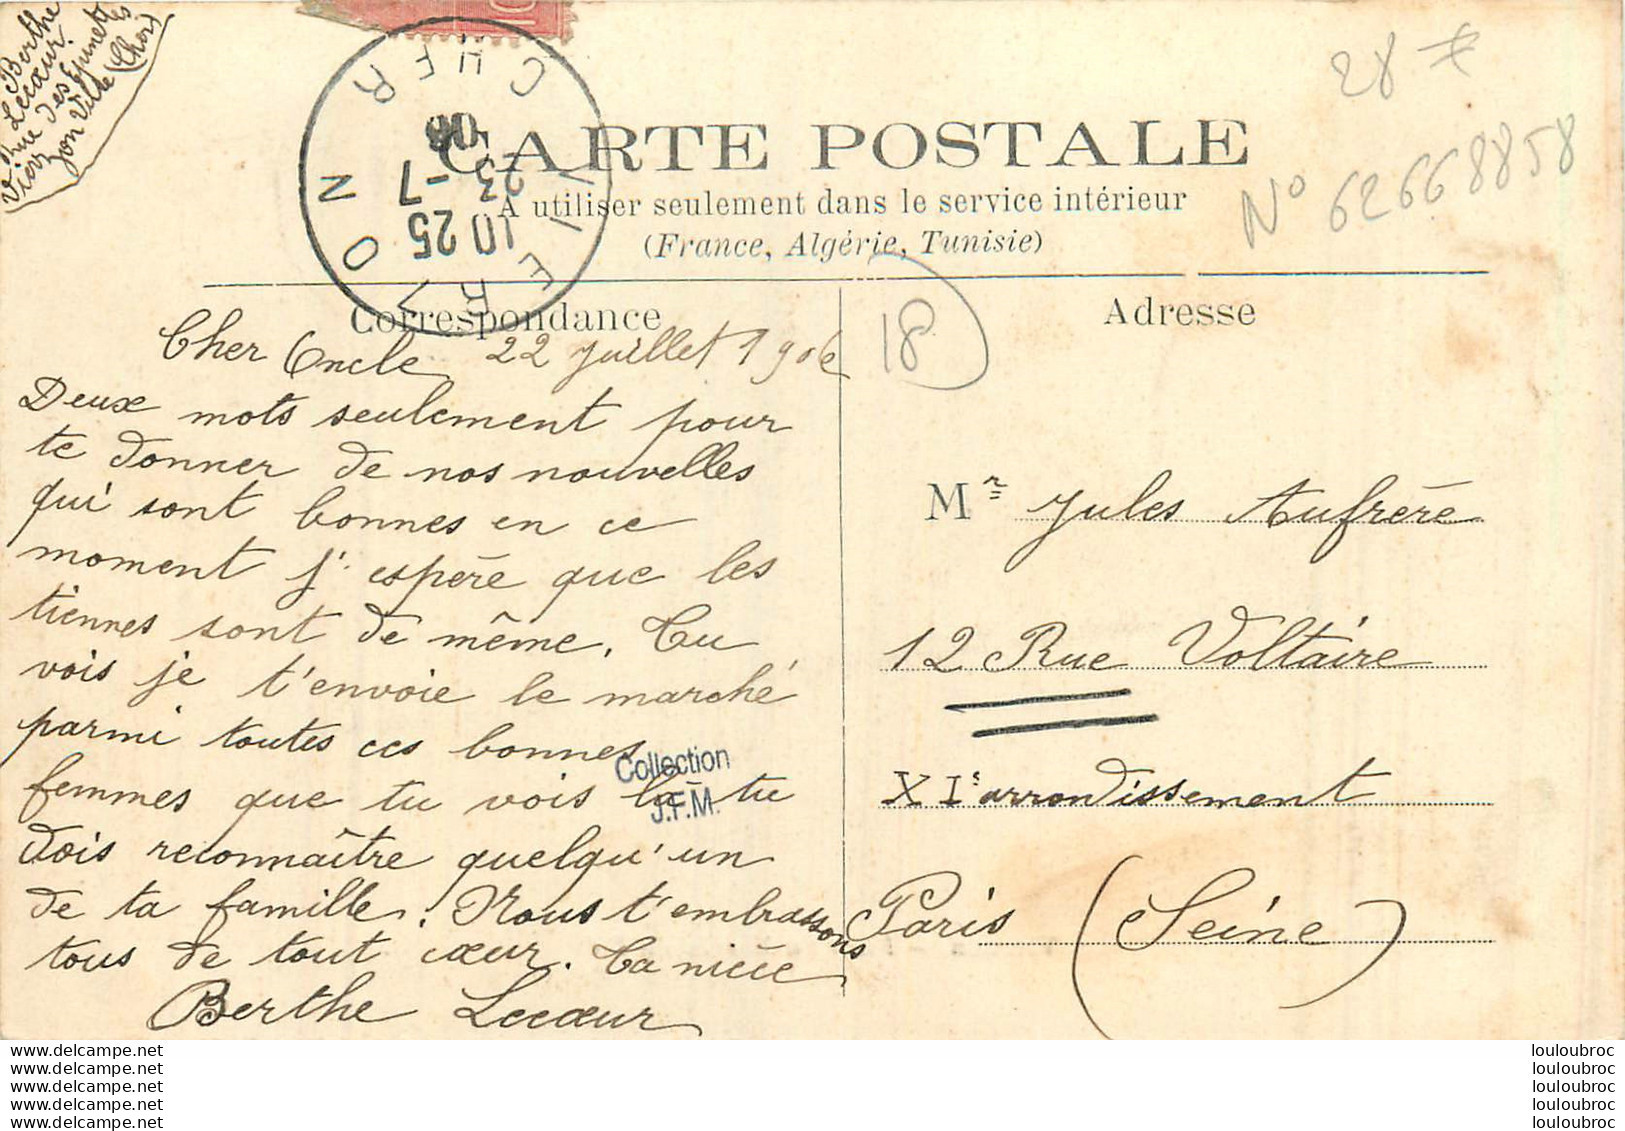 Berthe
Lecœur.
rue des Epinettes
Vierzon Ville (Cher)
28
CARTE POSTALE
A utiliser seulement dans le service intérieur
(France, Algérie, Tunisie)
N° 62668858
VIERZON
CHER
10 25
23 -7
06
Correspondance
Adresse
18
Cher Oncle 22 Juillet 1906
Deux mots seulement pour
te donner de nos nouvelles
qui sont bonnes en ce
moment j'espère que les
tiennes sont de même. Tu
vois je t'envoie le marché
parmi toutes ces bonnes
femmes que tu vois là tu
dois reconnaître quelqu'un
de ta famille. Nous t'embrassons
tous de tout cœur. Ta nièce
Berthe Lecœur
Collection
J.F.M.
Mr Jules Aufrère
12 Rue Voltaire
XIe arrondissement
Paris (Seine)
www.delcampe.net
www.delcampe.net
www.delcampe.net
www.delcampe.net
www.delcampe.net
louloubroc
louloubroc
louloubroc
louloubroc
louloubroc